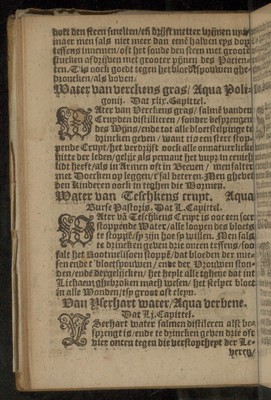 doet den steen smelten/ en drijft metter urijnen uyt
maer men sals niet meer dan een half once op dobbel
teffens innemen/ oft het soude den steen met groote
stucken afdrijven met grooter pijnen des Pacien-
ten. Tis oock goedt tegen het bloedtspouwen ghe-
droncken/ als boven.
Water van verckens gras/ Aqua Poli-
gonij. Dat xlix. Capittel.
Water van Verckens gras/ salmen vanden
Cruyde distilleeren/ sonder besprenghen
des Wijns/ ende tot alle bloetstelpinge te
drincken geven/ want tis een seer stop-
pende Cruyt/ het verdrijft oock alle onnatuerlicke
hitte der leden/ gelijc als yemant het vuyr in eenich
lidt heeft/ als in Armen oft in Beenen/ men salder
met Doecken op leggen/ t'sal beteren. Men gheeft
den Kinderen oock in teghen die Wormen.
Water van Teschkens cruyt. Aqua
Bursæ Pastoris. Dat L. Capittel.
Water va Teschkens Cruyt is ooc een seer
stoppende Water/ alle loopen des bloets
te stoppe/ sy zijn hoe sy willen. Men sals
te drincken geven drie oncen teffens/ soo
salt het Rootmelisoen stoppe/ dat bloeden der neu-
sen ende t'bloetspouwen/ ende der Vrouwen ston-
den/ ende dergelijcken/ het heylt alle tghene dat int
Lichaem ghebroken mach wesen/ het stelpet bloet
in alle Wonden/ tsy groot oft cleyn.
Van Yserhart water/ Aqua verbene.
Dat Lj. Capittel.
Yserhart water salmen distileren alst be-
sprengt is/ ende te drincken geven drie oft
vier oncen tegen die verstoptheyt der Le-
veren/